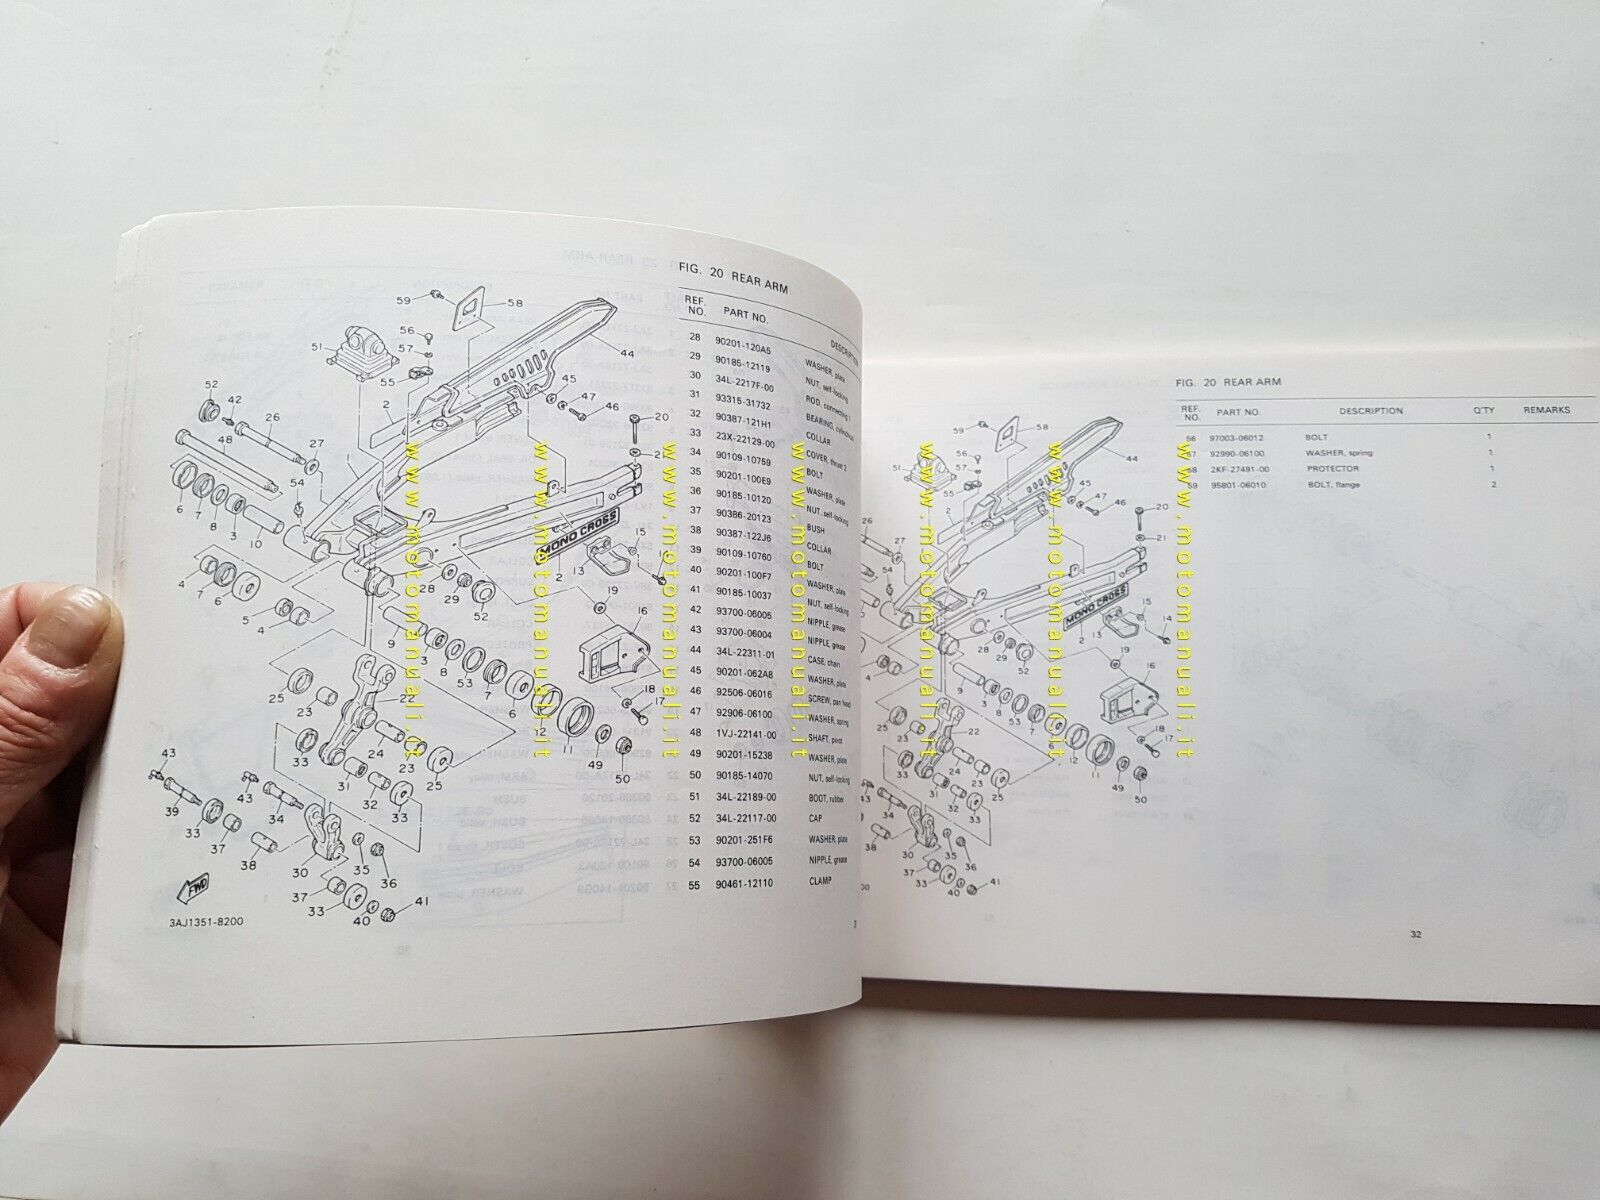 FIG. 20 REAR ARM
REF. NO. PART NO. DESCRIPTION
28 90201-120A5 WASHER, plate
29 90185-12119 NUT, self-locking
30 34L-2217F-00 ROD, connecting 1
31 93315-31732 BEARING, cylindrical
32 90387-121H1 COLLAR
33 23X-22129-00 COVER, thrust 2
34 90109-10759 BOLT
35 90201-100E9 WASHER, plate
36 90185-10120 NUT, self-locking
37 90386-20123 BUSH
38 90387-122J6 COLLAR
39 90109-10760 BOLT
40 90201-100F7 WASHER, plate
41 90185-10037 NUT, self-locking
42 93700-06005 NIPPLE, grease
43 93700-06004 NIPPLE, grease
44 34L-22311-01 CASE, chain
45 90201-062A8 WASHER, plate
46 92506-06016 SCREW, pan head
47 92906-06100 WASHER, spring
48 1VJ-22141-00 SHAFT, pivot
49 90201-15238 WASHER, plate
50 90185-14070 NUT, self-locking
51 34L-22189-00 BOOT, rubber
52 34L-22117-00 CAP
53 90201-251F6 WASHER, plate
54 93700-06005 NIPPLE, grease
55 90461-12110 CLAMP
MONO CROSS
FWD
3AJ1351-8200
www.motomanuali.it
www.motomanuali.it
www.motomanuali.it
www.motomanuali.it
FIG. 20 REAR ARM
REF. NO. PART NO. DESCRIPTION Q'TY REMARKS
56 97003-06012 BOLT 1
57 92990-06100 WASHER, spring 1
58 2KF-27491-00 PROTECTOR 1
59 95801-06010 BOLT, flange 2
MONO CROSS
www.motomanuali.it
www.motomanuali.it
www.motomanuali.it
32